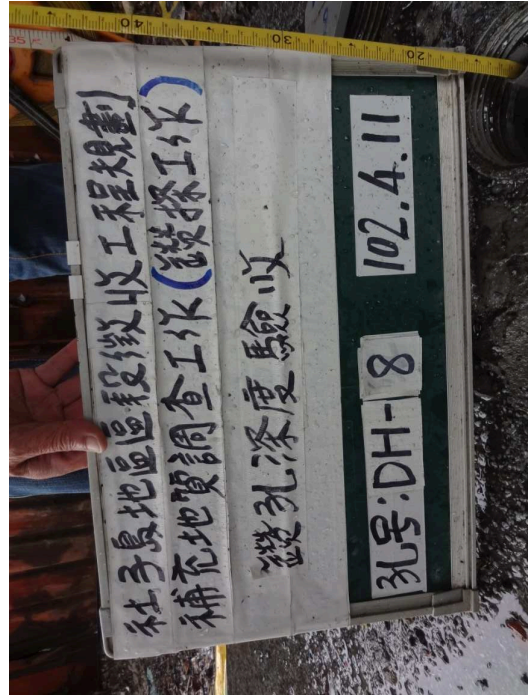 社子島地區區段徵收工程規劃
補充地質調查工作(鑽探工作)
鑽孔深度驗收
孔号:DH-8
102.4.11
40
30
20
35